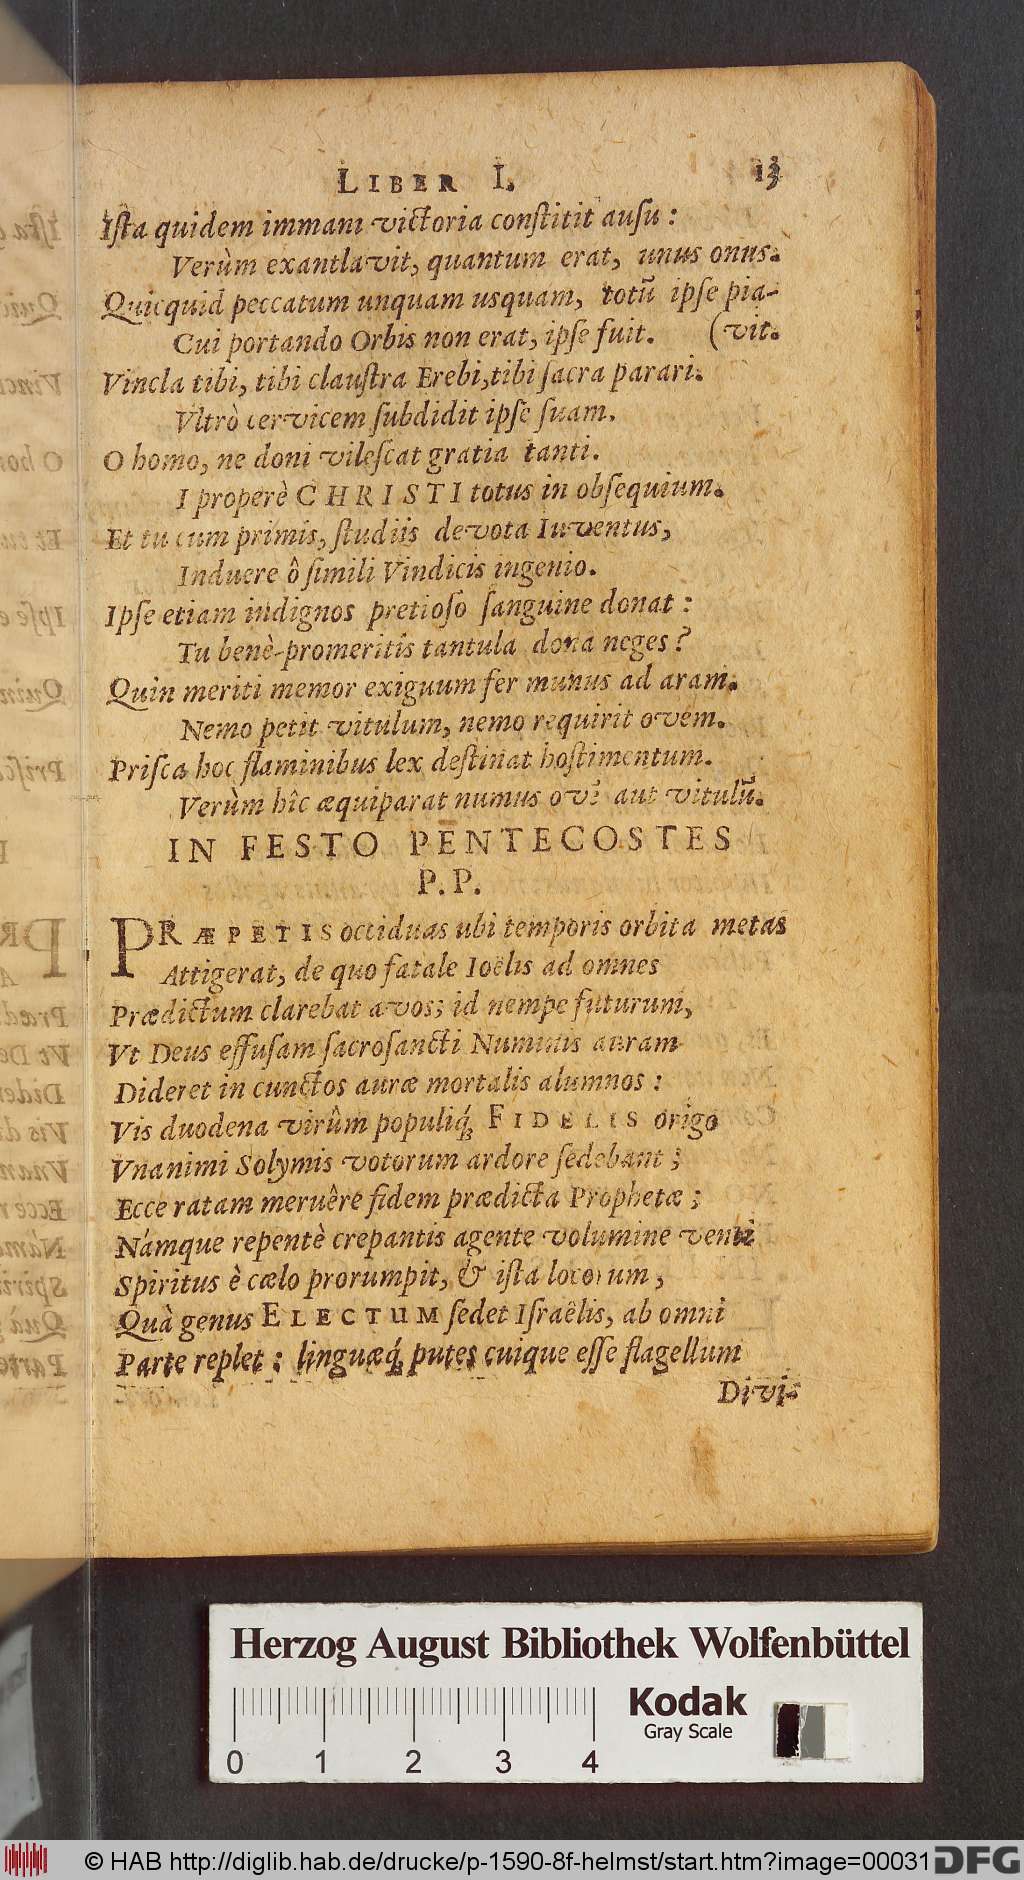 LIBER I. 13
Iſta quidem immani victoria conſtitit auſu :
Verùm exantlavit, quantum erat, unus onus.
Quicquid peccatum unquam usquam, totū ipſe pia-
Cui portando Orbis non erat, ipſe fuit. (vit.
Vincla tibi, tibi clauſtra Erebi, tibi ſacra parari.
Vltrò cervicem ſubdidit ipſe ſuam.
O homo, ne doni vileſcat gratia tanti.
I properè CHRISTI totus in obſequium.
Et tu cum primis, ſtudiis devota Iuventus,
Induere ô ſimili Vindicis ingenio.
Ipſe etiam indignos pretioſo ſanguine donat :
Tu benè-promeritis tantula dona neges ?
Quin meriti memor exiguum fer munus ad aram.
Nemo petit vitulum, nemo requirit ovem.
Priſca hoc flaminibus lex deſtinat hoſtimentum.
Verùm hîc æquiparat numus ovē aut vitulū.
IN FESTO PENTECOSTES
P. P.
PRÆPETIS occiduas ubi temporis orbita metas
Attigerat, de quo fatale Ioëlis ad omnes
Prædictum clarebat avos; id nempe futurum,
Vt Deus effuſam ſacroſancti Numinis auram
Dideret in cunctos auræ mortalis alumnos :
Vis duodena virûm populiq́; FIDELIS origo
Vnanimi Solymis votorum ardore ſedebant ;
Ecce ratam meruêre fidem prædicta Prophetæ ;
Námque repentè crepantis agente volumine venti
Spiritus è cælo prorumpit, & iſta locorum,
Quà genus ELECTUM ſedet Iſraêlis, ab omni
Parte replet : linguæq́; putes cuique eſſe flagellum
Divi-
Herzog August Bibliothek Wolfenbüttel
Kodak
Gray Scale
0 1 2 3 4
© HAB http://diglib.hab.de/drucke/p-1590-8f-helmst/start.htm?image=00031 DFG